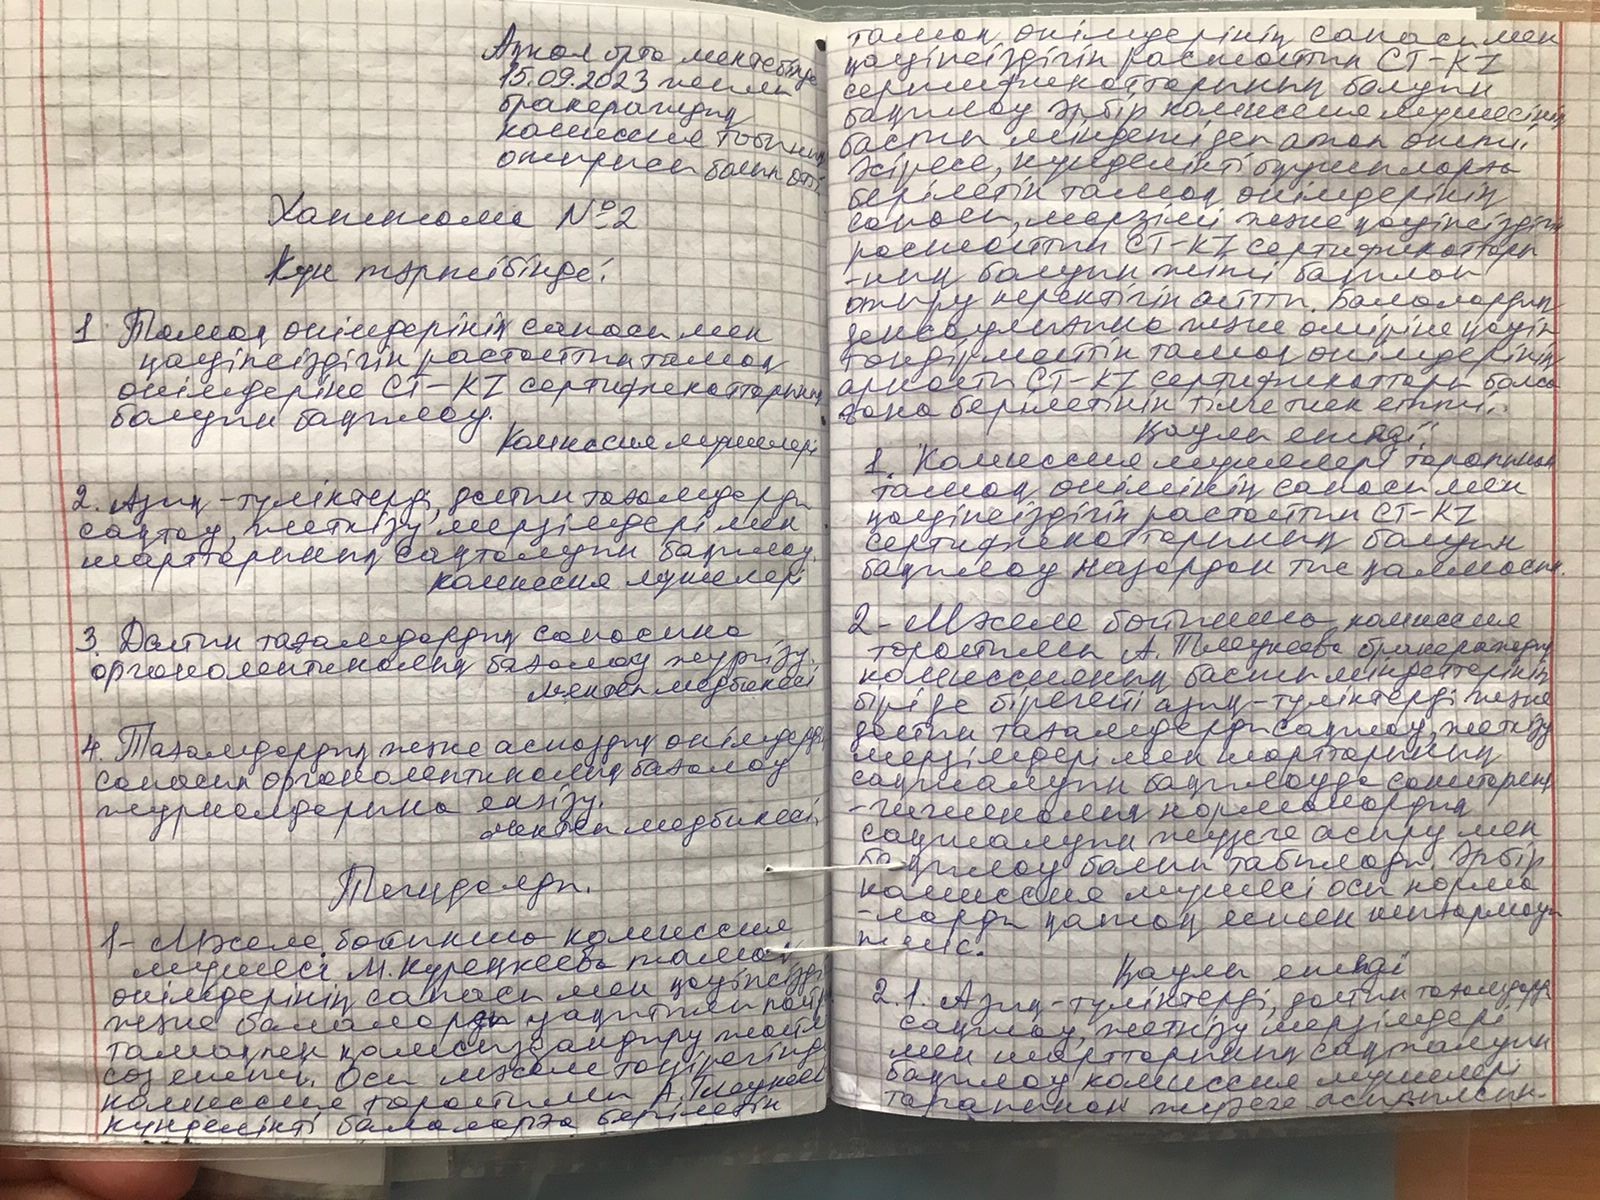 Ақжол орта мектебінде
15.09.2023 жылы
бракераждық
комиссия тобының
отырысы болып өтті
Хаттама №2
Күн тәртібінде:
1 Тамақ өнімдерінің сапасы мен
қауіпсіздігін растайтын тамақ
өнімдеріне СТ-KZ сертификаттарының
болуын бақылау.
Комиссия мүшелері
2. Азық-түліктерді, дайын тағамдарды
сақтау, жеткізу мерзімдері мен
шарттарының сақталуын бақылау.
комиссия мүшелері
3. Дайын тағамдардың сапасына
органолептикалық бағалау жүргізу.
мектеп медбикесі
4. Тағамдардың және аспаздық өнімдердің
сапасын органолептикалық бағалау
журналдарына енгізу.
мектеп медбикесі.
Тыңдалды.
1- Мәселе бойынша комиссия
мүшесі М. тамақ
өнімдерінің сапасы мен қауіпсізді
және балаларды уақытылы
тамақпен қамсыздандыру жайлы
сөз етті. Осы мәселе төңірегінде
комиссия төрайымы А. Тлеукеева
күнделікті балаларға берілетін
тамақ өнімдерінің сапасы мен
қауіпсіздігін растайтын СТ-KZ
сертификаттарының болуын
бақылау әрбір комиссия мүшесінің
басты міндеті деп атап өтті.
Әсіресе, күнделікті оқушыларға
берілетін тамақ өнімдерінің
сапасы, мерзімі және қауіпсіздігін
растайтын СТ-KZ сертификаттары
-ның болуын жіті бақылап
отыру керектігін айтты. Балалардың
денсаулығына және өміріне қауіп
төндірмейтін тамақ өнімдерінің
арнайы СТ-KZ сертификаттары болса
ғана берілетінін тілге тиек етті.
Қаулы етеді:
1. Комиссия мүшелері тарапынан
тамақ өнімінің сапасы мен
қауіпсіздігін растайтын СТ-KZ
сертификаттарының болуын
бақылау назардан тыс қалмасын.
2- Мәселе бойынша комиссия
төрайымы А. Тлеукеева бракераждық
комиссияның басты міндеттерінің
бірі де бірегейі азық-түліктерді және
дайын тағамдарды сақтау, жеткізу
мерзімдері мен шарттарының
сақталуын бақылауда санитарлық
-гигиеналық нормалардың
сақталуын жүзеге асыру мен
бақылау болып табылады. Әрбір
комиссия мүшесі осы норма
-ларды қатаң
тиіс.
Қаулы етеді
2.1. Азық-түліктерді, дайын тағамдарды
сақтау, жеткізу мерзімдері
мен шарттарының сақталуын
бақылау комиссия мүшелері
тарапынан жүзеге асырылсын.